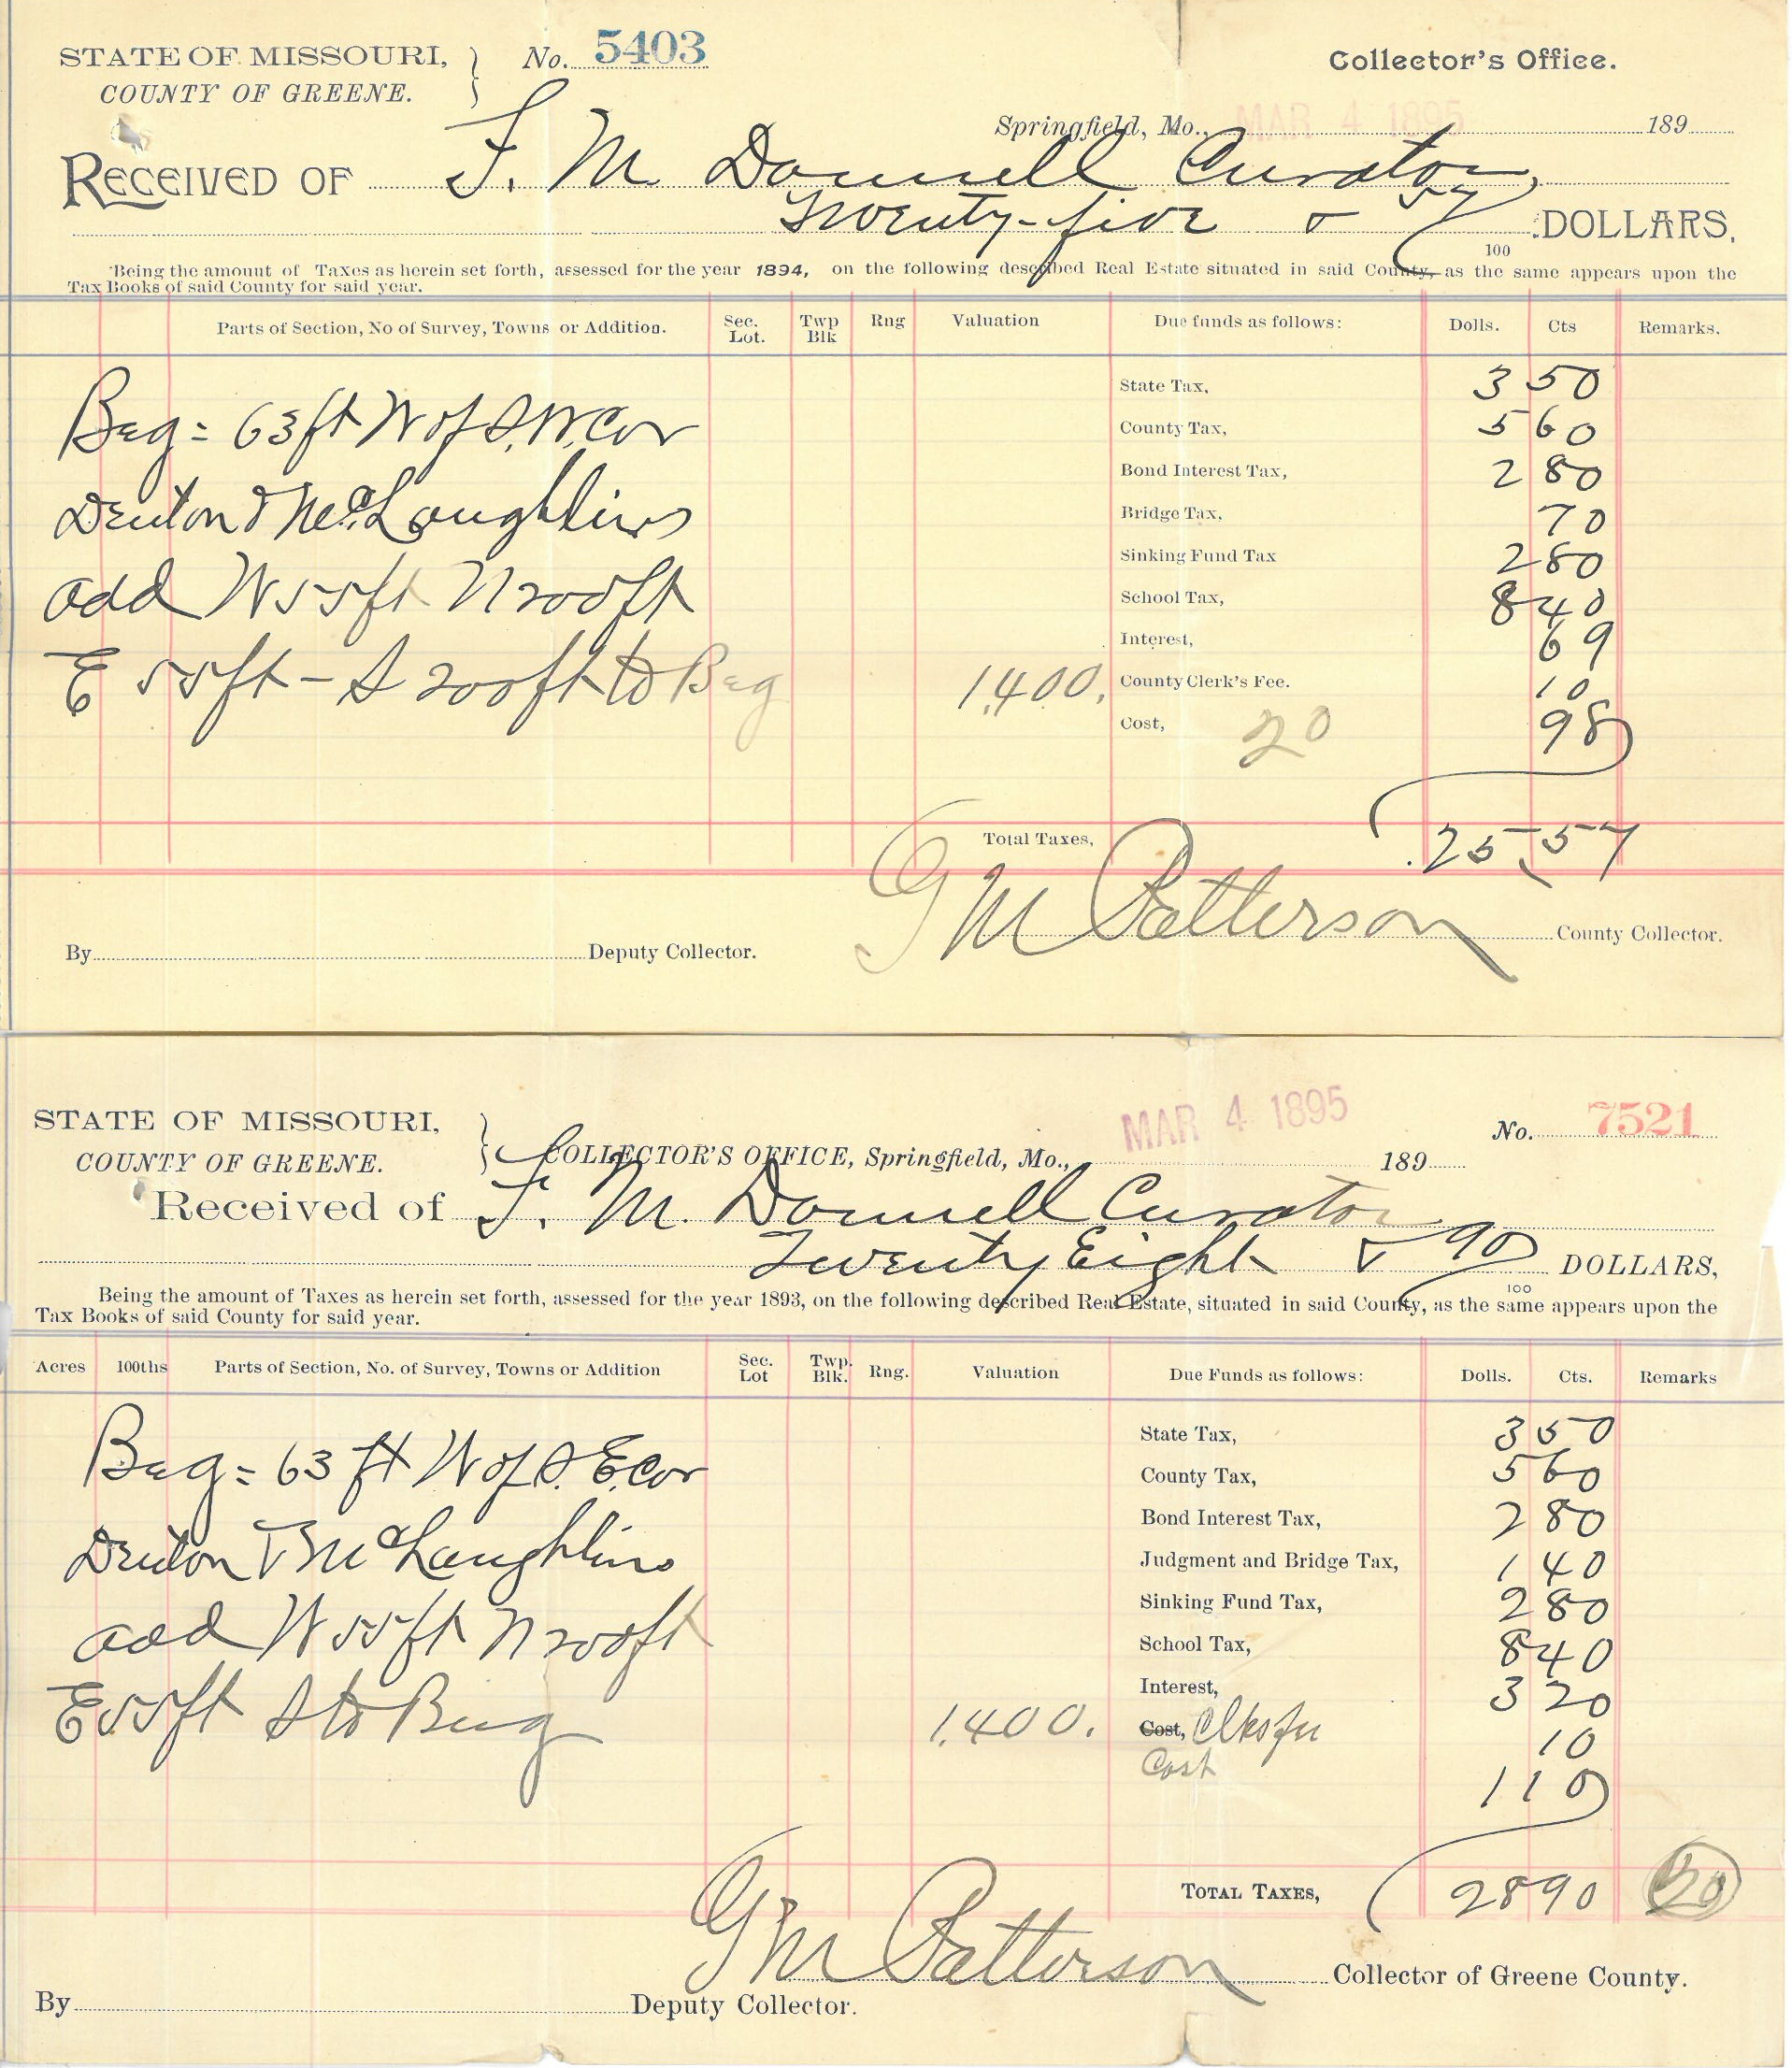 STATE OF MISSOURI, } No. 5403 Collector's Office.
COUNTY OF GREENE.
Springfield, Mo., MAR 4 1895 189
RECEIVED OF F. M. Donnell Curator,
Twenty-five & 57/100 DOLLARS,
Being the amount of Taxes as herein set forth, assessed for the year 1894, on the following described Real Estate situated in said County, as the same appears upon the
Tax Books of said County for said year.
Parts of Section, No of Survey, Towns or Addition. Sec. Lot. Twp Blk Rng Valuation Due funds as follows: Dolls. Cts Remarks.
State Tax, 3 50
Beg = 63 ft W of S.W. Cor County Tax, 5 60
Bond Interest Tax, 2 80
Denton & McLaughlins Bridge Tax, 70
Sinking Fund Tax 2 80
add W 55 ft N 200 ft School Tax, 8 40
Interest, 69
E 55 ft - S 200 ft to Beg 1,400. County Clerk's Fee. 10
Cost, 20 98
Total Taxes, 25.57
G M Patterson County Collector.
By Deputy Collector.
STATE OF MISSOURI, } MAR 4 1895 No. 7521
COUNTY OF GREENE. COLLECTOR'S OFFICE, Springfield, Mo., 189
Received of F. M. Donnell Curator
Twenty Eight & 90/100 DOLLARS,
Being the amount of Taxes as herein set forth, assessed for the year 1893, on the following described Real Estate, situated in said County, as the same appears upon the
Tax Books of said County for said year.
Acres 100ths Parts of Section, No. of Survey, Towns or Addition Sec. Lot Twp. Blk. Rng. Valuation Due Funds as follows: Dolls. Cts. Remarks
State Tax, 3 50
Beg = 63 ft W of S. E. cor County Tax, 5 60
Bond Interest Tax, 2 80
Denton & McLaughlins Judgment and Bridge Tax, 1 40
Sinking Fund Tax, 2 80
add W 55 ft N 200 ft School Tax, 8 40
Interest, 3 20
E 55 ft S to Beg 1,400. Cost, Clks fee 10
Cost 1 10
TOTAL TAXES, 28 90 20
G M Patterson Collector of Greene County.
By Deputy Collector.